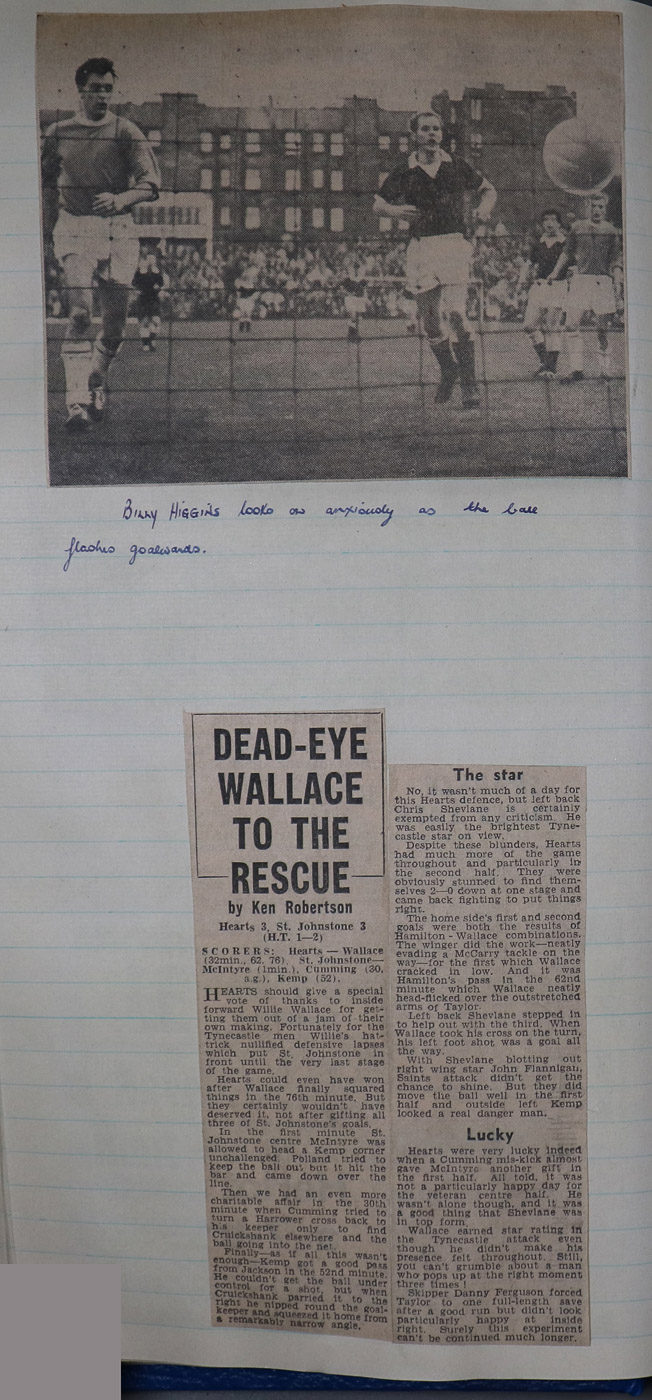 Billy Higgins looks on anxiously as the ball
flashes goalwards.
DEAD-EYE
WALLACE
TO THE
RESCUE
by Ken Robertson
Hearts 3, St. Johnstone 3
(H.T. 1—2)
SCORERS: Hearts — Wallace
(32min., 62, 76). St. Johnstone—
McIntyre (1min.), Cumming (30,
o.g.), Kemp (52).
HEARTS should give a special
vote of thanks to inside
forward Willie Wallace for get-
ting them out of a jam of their
own making. Fortunately for the
Tynecastle men Willie's hat-
trick nullified defensive lapses
which put St. Johnstone in
front until the very last stage
of the game.
Hearts could even have won
after Wallace finally squared
things in the 76th minute. But
they certainly wouldn't have
deserved it, not after gifting all
three of St. Johnstone's goals.
In the first minute St.
Johnstone centre McIntyre was
allowed to head a Kemp corner
unchallenged. Polland tried to
keep the ball out but it hit the
bar and came down over the
line.
Then we had an even more
charitable affair in the 30th
minute when Cumming tried to
turn a Harrower cross back to
his keeper only to find
Cruickshank elsewhere and the
ball going into the net.
Finally—as if all this wasn't
enough—Kemp got a good pass
from Jackson in the 52nd minute.
He couldn't get the ball under
control for a shot, but when
Cruickshank parried it to the
right he nipped round the goal-
keeper and squeezed it home from
a remarkably narrow angle.
The star
No, it wasn't much of a day for
this Hearts defence, but left back
Chris Shevlane is certainly
exempted from any criticism. He
was easily the brightest Tyne-
castle star on view.
Despite these blunders, Hearts
had much more of the game
throughout and particularly in
the second half. They were
obviously stunned to find them-
selves 2—0 down at one stage and
came back fighting to put things
right.
The home side's first and second
goals were both the results of
Hamilton-Wallace combinations.
The winger did the work—neatly
evading a McCarry tackle on the
way—for the first which Wallace
cracked in low. And it was
Hamilton's pass in the 62nd
minute which Wallace neatly
head-flicked over the outstretched
arms of Taylor.
Left back Shevlane stepped in
to help out with the third. When
Wallace took his cross on the turn,
his left foot shot was a goal all
the way.
With Shevlane blotting out
right wing star John Flannigan,
Saints attack didn't get the
chance to shine. But they did
move the ball well in the first
half and outside left Kemp
looked a real danger man.
Lucky
Hearts were very lucky indeed
when a Cumming mis-kick almost
gave McIntyre another gift in
the first half. All told, it was
not a particularly happy day for
the veteran centre half. He
wasn't alone though, and it was
a good thing that Shevlane was
in top form.
Wallace earned star rating in
the Tynecastle attack even
though he didn't make his
presence felt throughout. Still,
you can't grumble about a man
who pops up at the right moment
three times!
Skipper Danny Ferguson forced
Taylor to one full-length save
after a good run but didn't look
particularly happy at inside
right. Surely this experiment
can't be continued much longer.